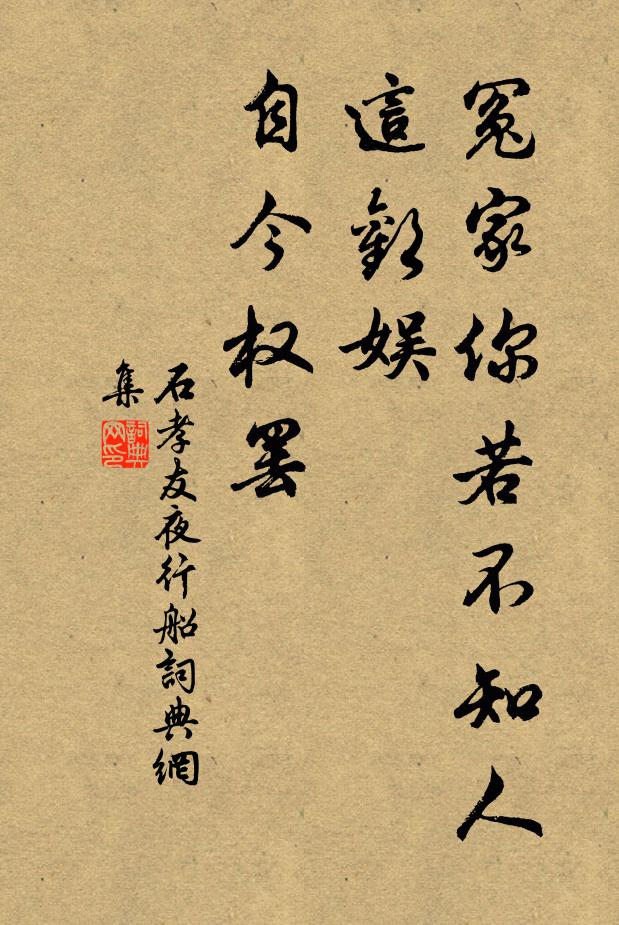 冤家你若不知人
這歡娛
自今权罢
石孝友夜行船詞典網
集
詞典
网印